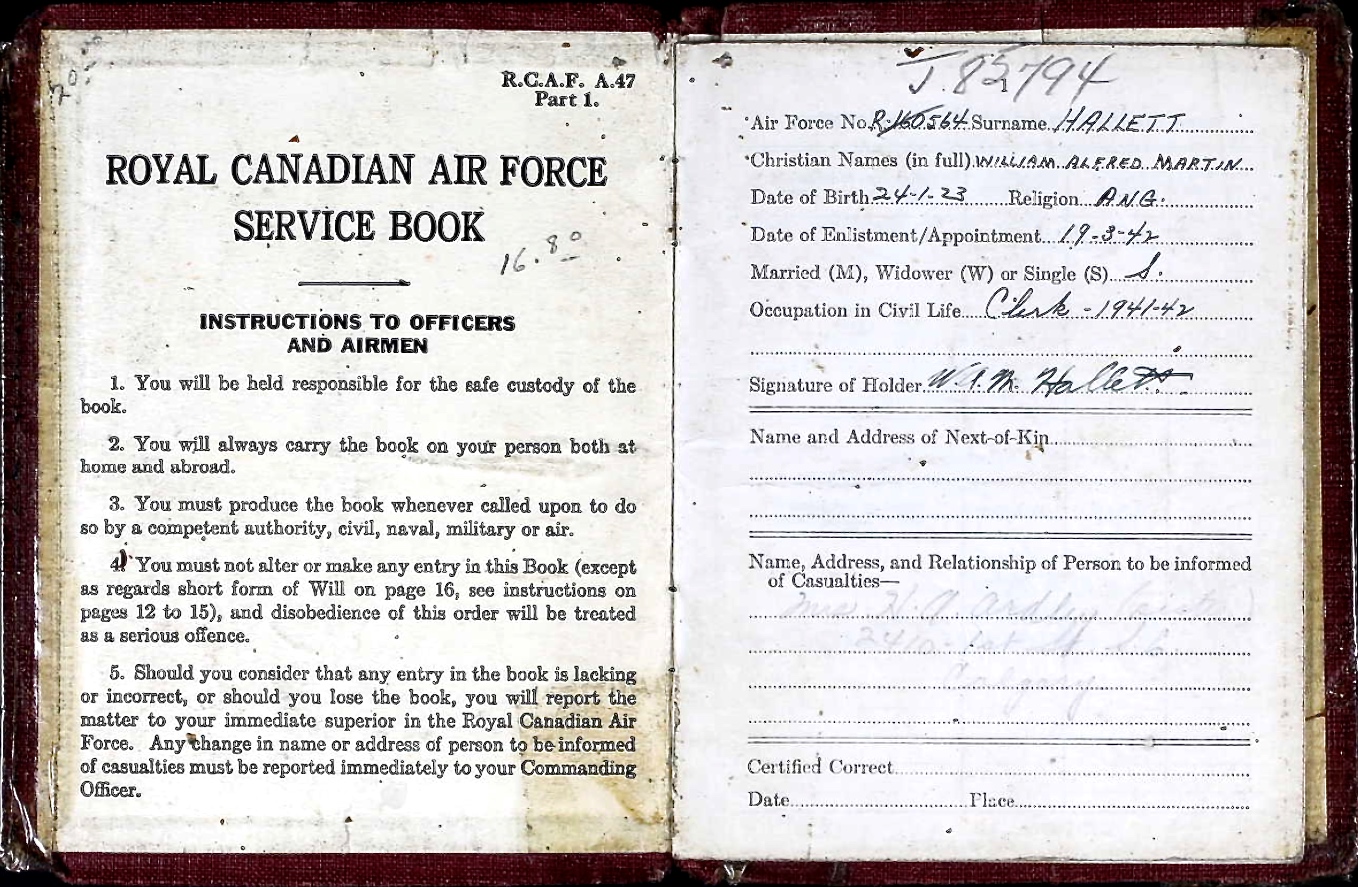 R.C.A.F. A.47
Part 1.
ROYAL CANADIAN AIR FORCE
SERVICE BOOK
16.80
INSTRUCTIONS TO OFFICERS
AND AIRMEN
1. You will be held responsible for the safe custody of the
book.
2. You will always carry the book on your person both at
home and abroad.
3. You must produce the book whenever called upon to do
so by a competent authority, civil, naval, military or air.
4. You must not alter or make any entry in this Book (except
as regards short form of Will on page 16, see instructions on
pages 12 to 15), and disobedience of this order will be treated
as a serious offence.
5. Should you consider that any entry in the book is lacking
or incorrect, or should you lose the book, you will report the
matter to your immediate superior in the Royal Canadian Air
Force. Any change in name or address of person to be informed
of casualties must be reported immediately to your Commanding
Officer.
J.85794
Air Force No. R.160564 Surname HALLETT
Christian Names (in full) WILLIAM ALFRED MARTIN
Date of Birth 24-1-23 Religion ANG.
Date of Enlistment/Appointment 19-3-42
Married (M), Widower (W) or Single (S) S.
Occupation in Civil Life Clerk - 1941-42
Signature of Holder W.A.M. Hallett
Name and Address of Next-of-Kin
Name, Address, and Relationship of Person to be informed
of Casualties—
Mrs H.A. (sister)
1st St
Calgary
Certified Correct
Date Place